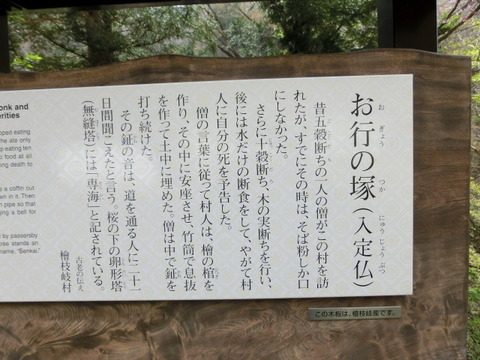 お行の塚(入定仏)
お ぎょう つか にゅう じょう ぶつ
昔五穀断ちの一人の僧がこの村を訪
れたが、すでにその時は、そば粉しか口
にしなかった。
さらに十穀断ち、木の実断ちを行い、
後には水だけの断食をして、やがて村
人に自分の死を予告した。
僧の言葉に従って村人は、檜の棺を
作り、その中に安座させ、竹筒で息抜
を作って土中に埋めた。僧は中で鉦を
打ち続けた。
その鉦の音は、道を通る人に二十一
日間聞こえたと言う。桜の下の卵形塔
(無縫塔)には「専海」と記されている。
古老の伝え
檜枝岐村
この木板は、檜枝岐産です。
onk and
erities
pped eating
he ate only
p eating ten
g food at all
ing death to
e a coffin cut
wn in it. Then
n pipe so that
ing a bell for
by passersby
ree stands an
name, "Senkai."